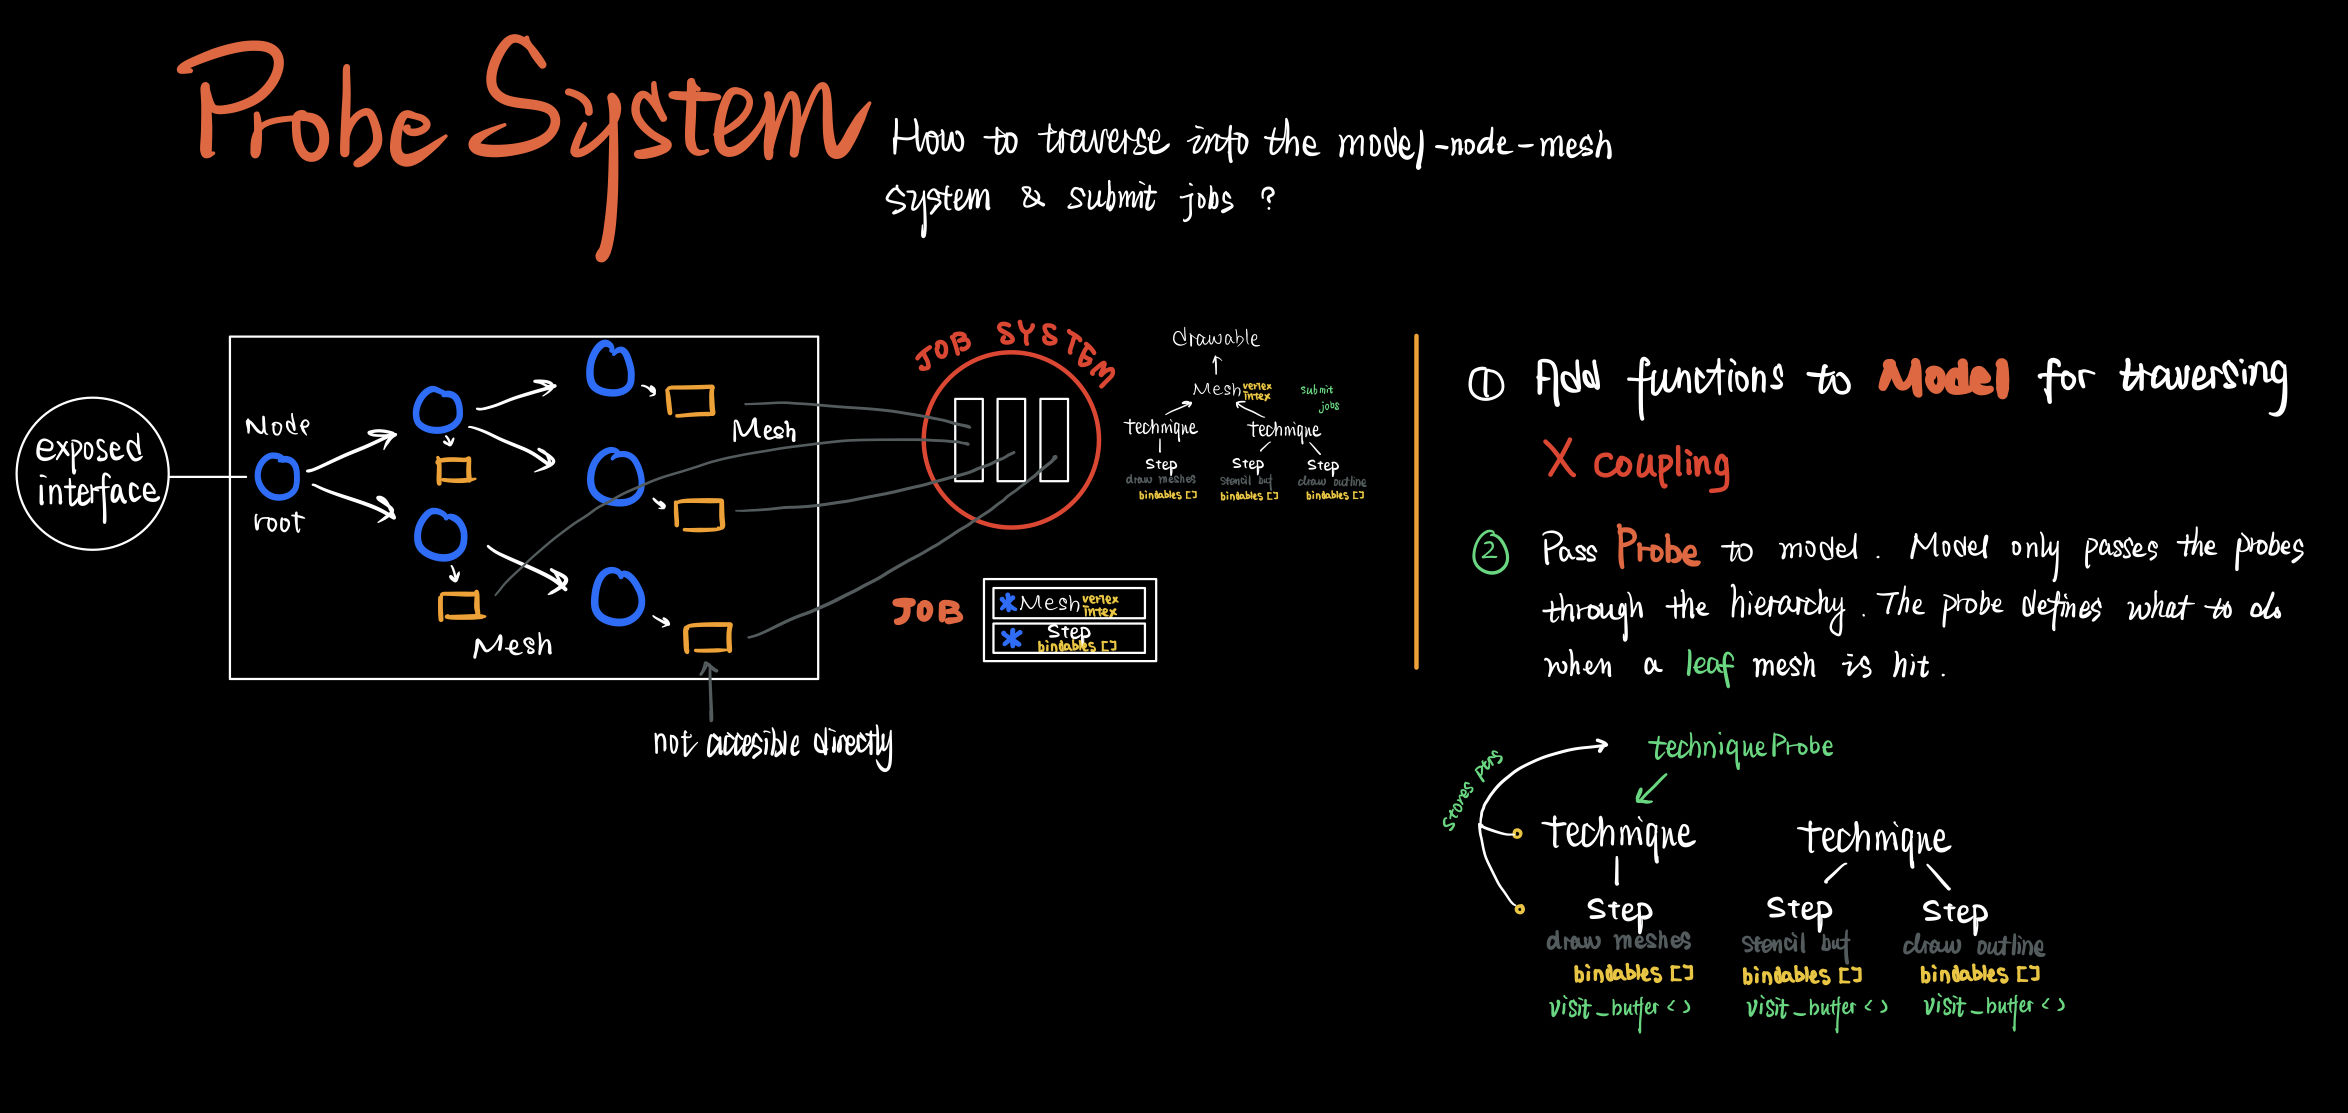 Probe System
How to traverse into the model-node-mesh
system & submit jobs ?
exposed
interface
Node
root
Mesh
Mesh
not accesible directly
JOB SYSTEM
drawable
Mesh vertex
intex
submit
jobs
technique
technique
Step
draw meshes
bindables []
Step
stencil buf
bindables []
Step
draw outline
bindables []
JOB
*Mesh vertex
intex
* Step
bindables []
① Add functions to Model for traversing
X coupling
② Pass Probe to model. Model only passes the probes
through the hierarchy. The probe defines what to do
when a leaf mesh is hit.
techniqueProbe
stores ptrs
technique
technique
Step
draw meshes
bindables []
visit_buffer<>
Step
stencil buf
bindables []
visit_buffer<>
Step
draw outline
bindables []
visit_buffer<>